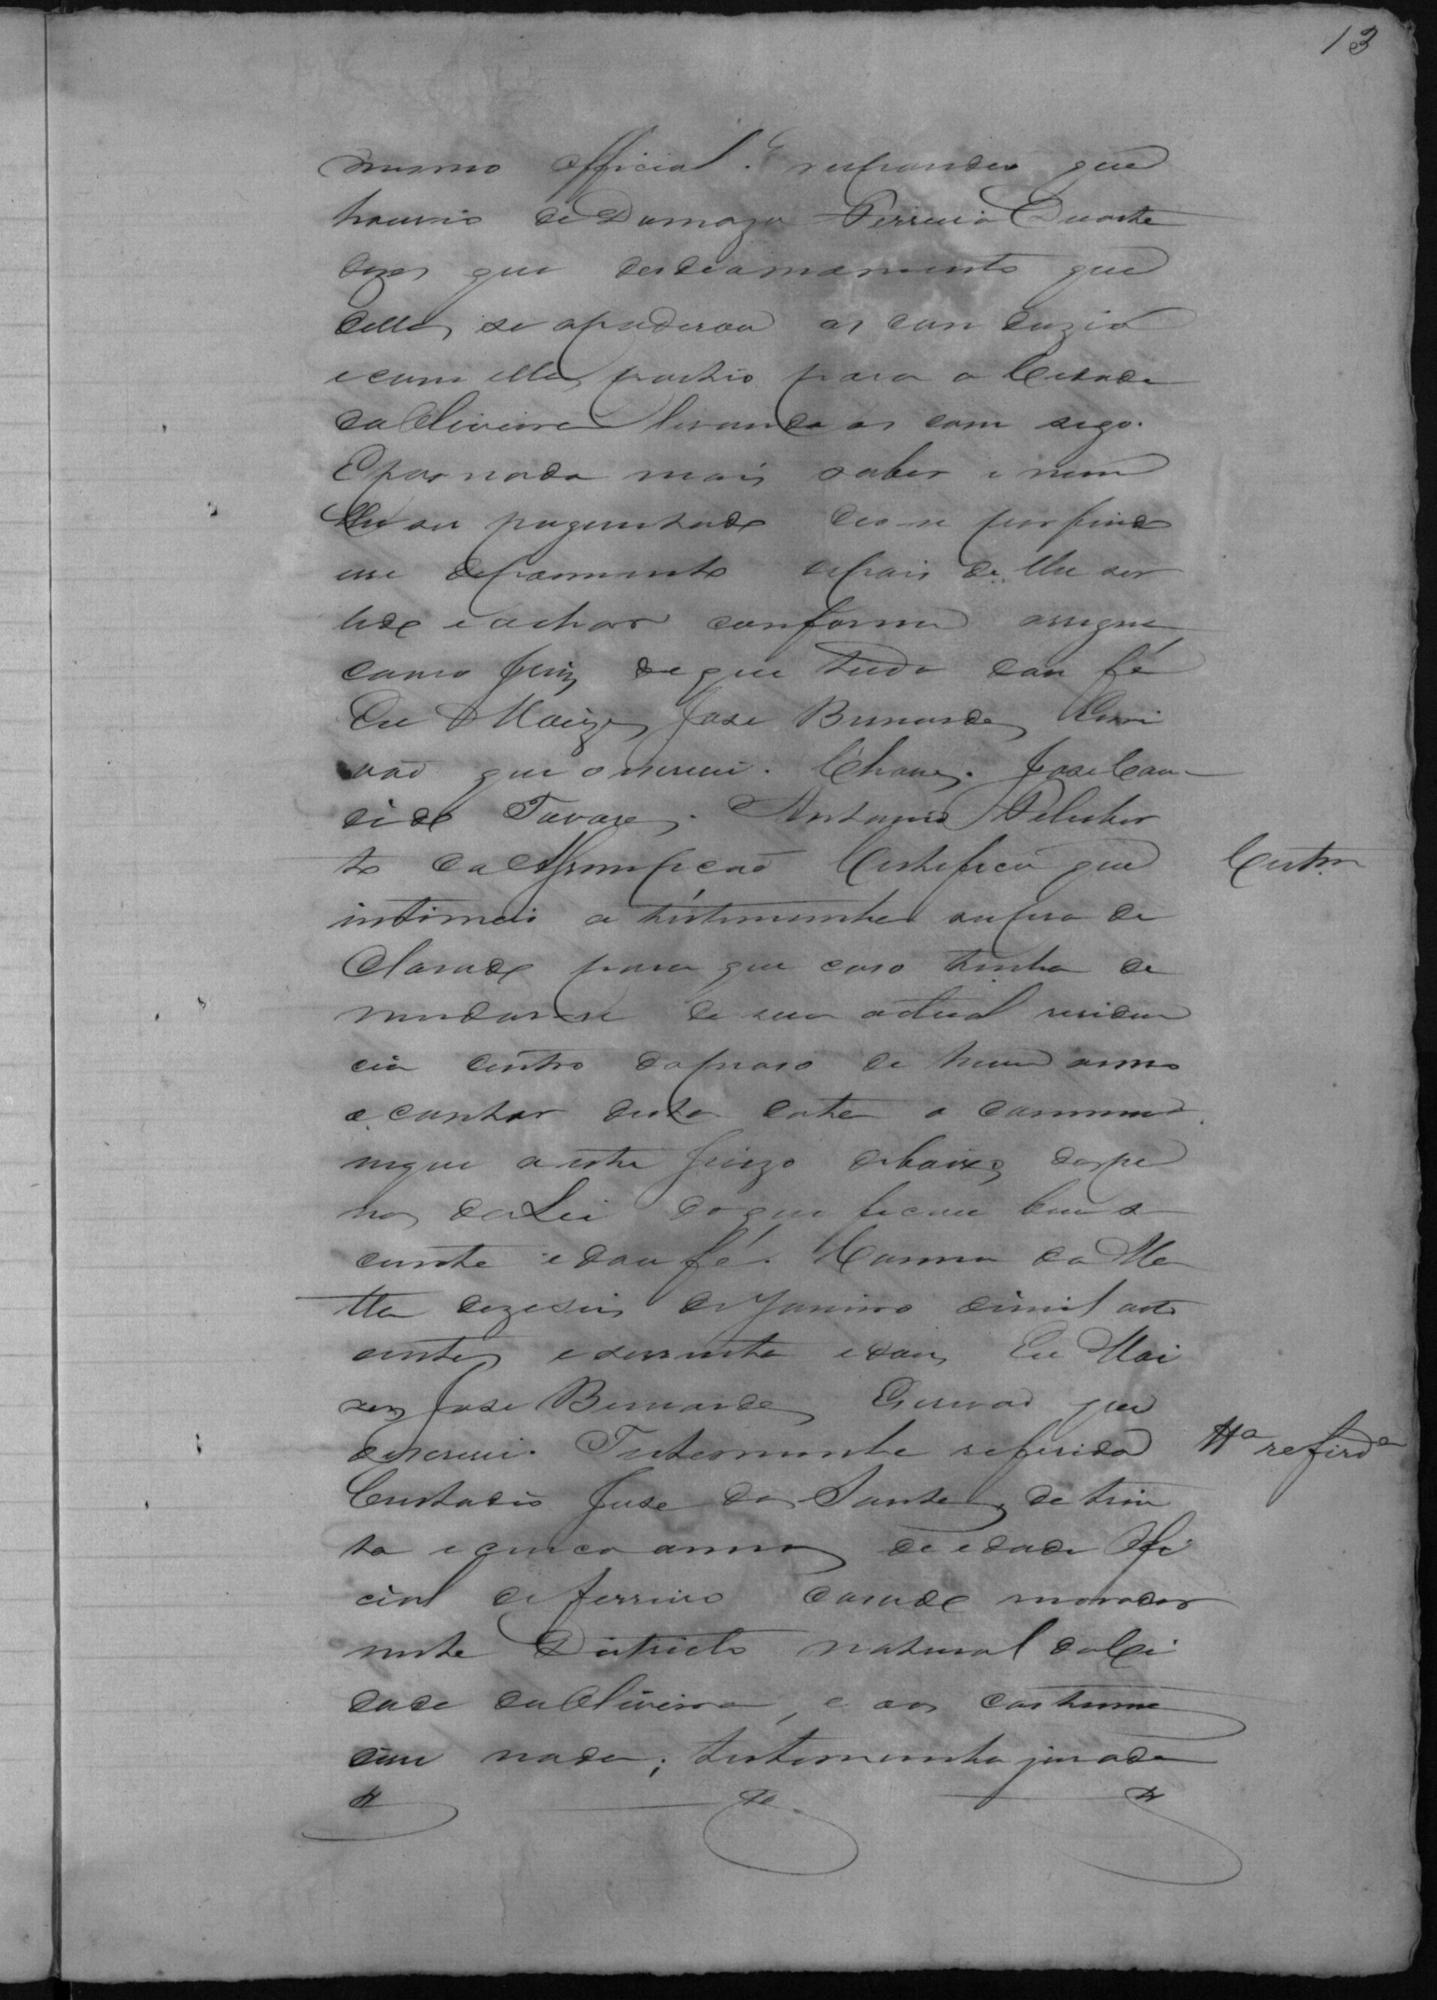 13
mesmo official. E respondeo que
houvio de Damazo Ferreira Duarte
dizer que desde o momento que
delles se apoderou os conduzio
e com elles partio para a Cidade
da Oliveira levando os com sigo.
E por nada mais saber e nem
lhe ser perguntado deo-se por findo
esse depoimento depois de lhe ser
lido e achar conforme assigna
com o Juiz de que tudo dou fé
Eu Moizes José Bernardes Escri
vão que o escrevi. Chaves. José Can-
dido Tavares. Antonio
to da Certifico que
intimei a testemunha supra de
clarado para que caso tenha de
mudar-se de sua actual residen
cia dentro do praso de hum anno
a contar desta data o commu
nique a este Juizo debaixo das pe
nas da Lei do que ficou bem s
ciente e dou fé. Carmo da Ma
tta dezeseis de Janeiro de mil oito
centos e sessenta e dous Eu Moi
zes José Bernardes Escrivão que
o escrevi. Testemunha referida
Custodio José dos Santos, de trin
ta e cinco annos de edade Offi
cial de ferreiro casado morador
neste Districto natural da Ci
dade da Oliveira, e aos costumes
disse nada; testemunha jurada
Certam
Ttª referidª